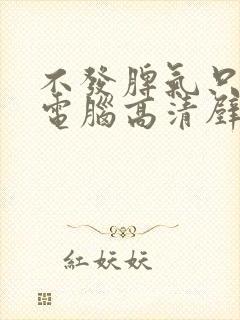 不發脾氣只
電腦高清壁
紅妖妖